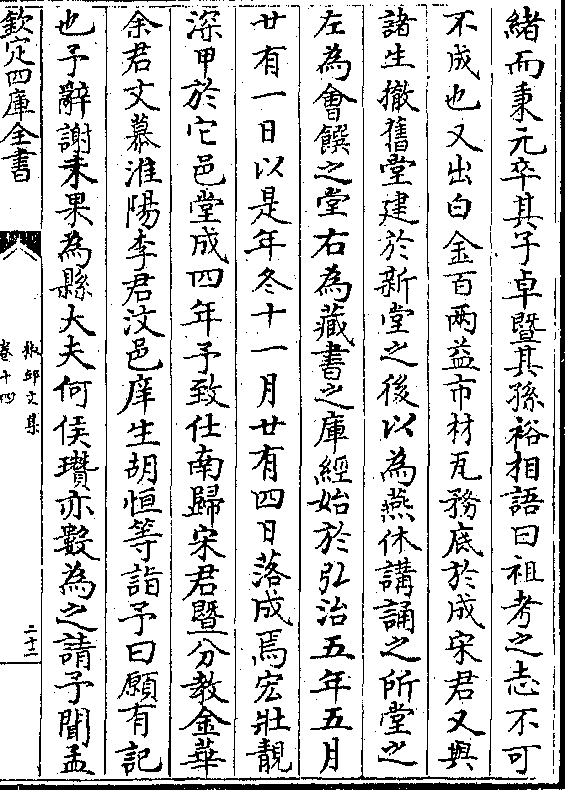 緒而秉元卒其子卓暨其孫裕相語曰祖考之志不可
不成也又出白金百兩益市材瓦務底於成宋君又與
諸生撤舊堂建於新堂之後以為燕休講誦之所堂之
左為會饌之堂右為藏書之庫經始於弘治五年五月
廿有一日以是年冬十一月廿有四日落成焉宏壯靚
深甲於它邑堂成四年予致仕南歸宋君暨分教金華
余君文慕淮陽李君汶邑庠生胡恒等詣予曰願有記
也予辭謝未果為縣大夫何侯瓚亦數為之請予聞孟
欽定四庫全書
椒邱文集
卷十四
二十二